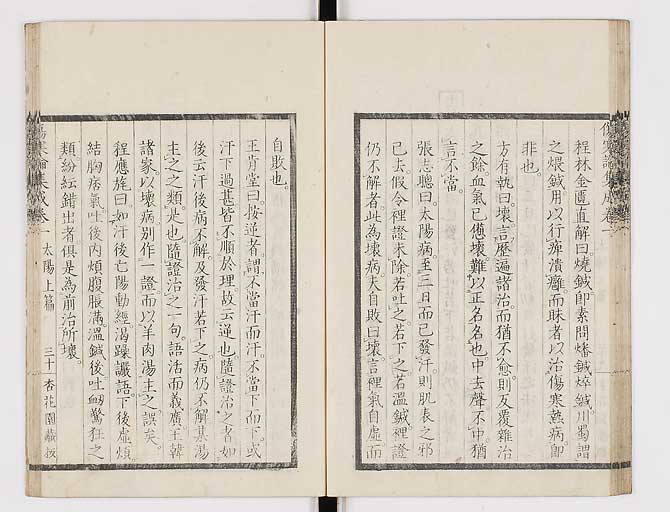 程林金匱直解曰燒鍼即素問燔鍼焠鍼川蜀謂
之煨鍼用以行痺潰癰而昧者以治傷寒熱病即
非也
方有執曰壞言歷遍諸治而猶不愈則反覆雜治
之餘血氣已憊壞難以正名名也中去聲不中猶
言不當
張志聰曰太陽病至三日而已發汗則肌表之邪
已去假令裡證未除若吐之若下之若溫鍼裡證
仍不解者此為壞病夫自敗曰壞言裡氣自虛而
自敗也
王肯堂曰按逆者謂不當汗而汗不當下而下或
汗下過甚皆不順於理故云逆也隨證治之者如
後云汗後病不解及發汗若下之病仍不解某湯
主之之類是也隨證治之一句語活而義廣王韓
諸家以壞病別作一證而以羊肉湯主之誤矣
程應旄曰如汗後亡陽動經渴躁讝語下後虛煩
結胸痞氣吐後內煩腹脹滿溫鍼後吐衄驚狂之
類紛紜錯出者俱是為前治所壞
傷寒論集成卷一 太陽上篇 三十一 杏花園藏板